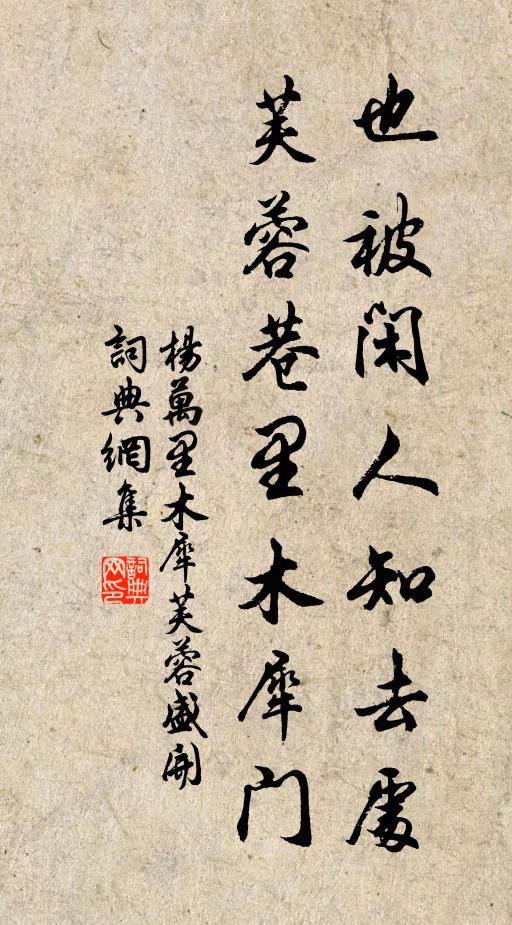 也被閑人知去處
芙蓉巷里木犀門
楊萬里木犀芙蓉盛開
詞典網集
詞典网印